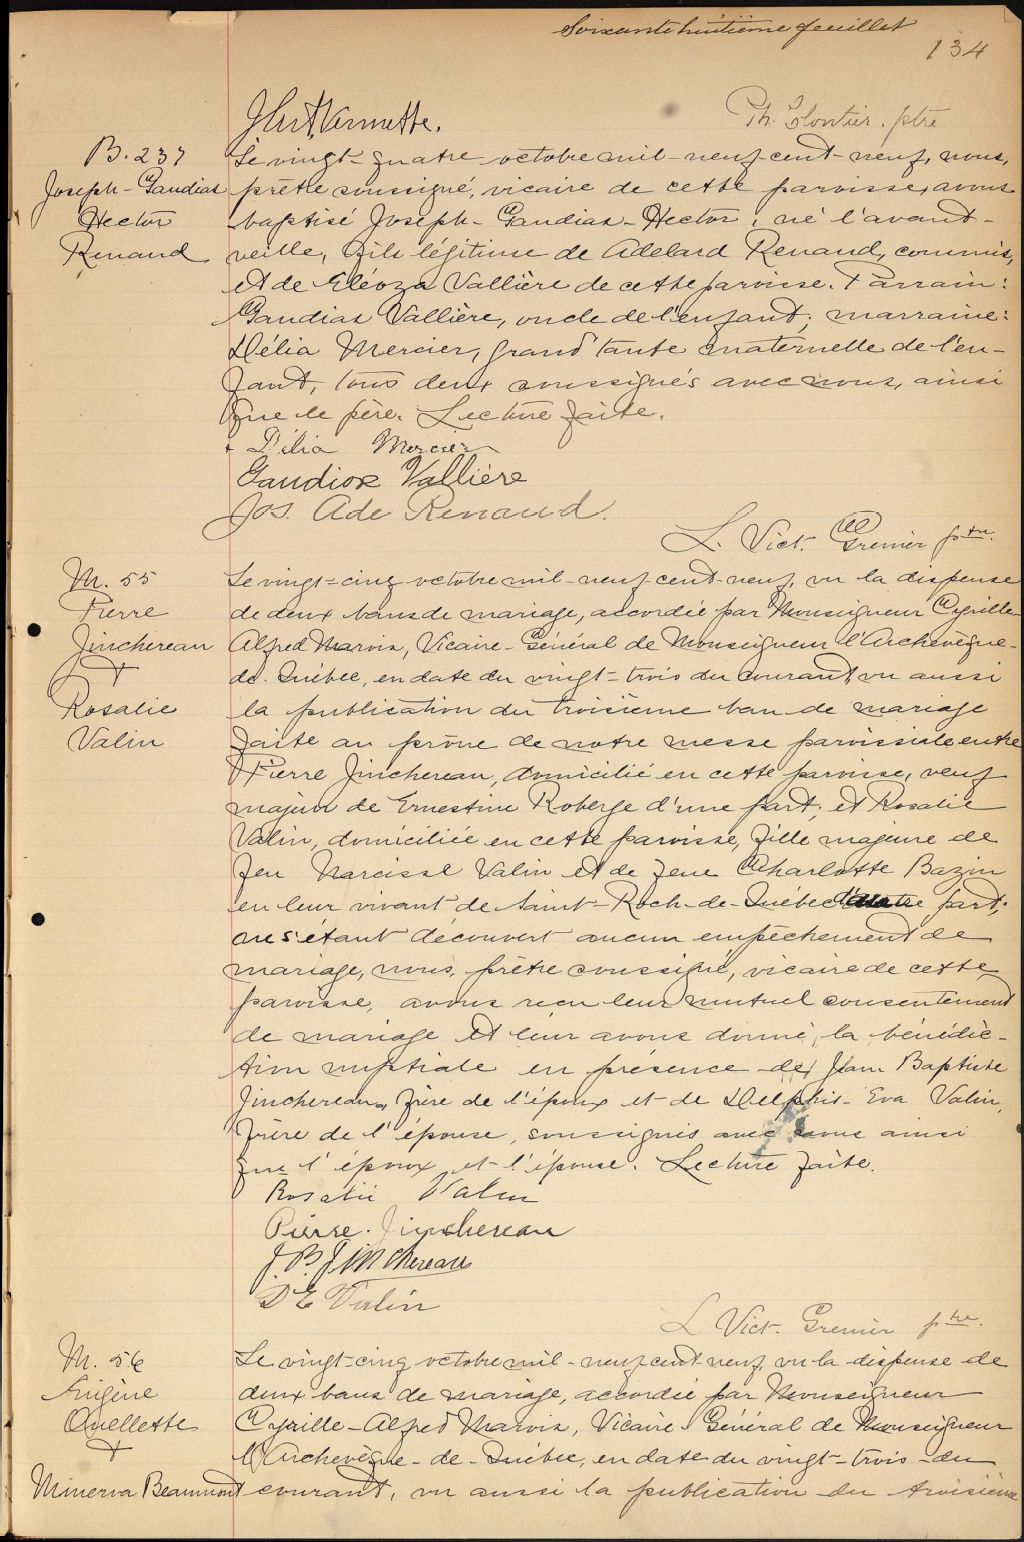 Soixante huitième feuillet
134
J Vermette.
Ph. Cloutier. ptre
B. 237
Joseph-Gaudias
Hector
Renaud
Le vingt-quatre octobre mil-neuf-cent-neuf, nous,
prêtre soussigné, vicaire de cette paroisse, avons
baptisé Joseph-Gaudias-Hector, né l'avant-
veille, fils légitime de Adelard Renaud, commis,
et de Eléoza Vallière de cette paroisse. Parrain:
Gaudias Vallière, oncle de l'enfant; marraine:
Délia Mercier, grand'tante maternelle de l'en-
fant, tous deux soussignés avec nous, ainsi
que le père. Lecture faite.
Délia Mercier
Gaudiose Vallière
Jos. Ade Renaud.
L. Vict. Grenier ptre.
M. 55
Pierre
Jinchereau
+
Rosalie
Valin
Le vingt-cinq octobre mil-neuf-cent-neuf, vu la dispense
de deux bans de mariage, accordée par Monseigneur Cyrille
Alfred Marois, Vicaire-Général de Monseigneur l'Archevêque-
de-Québec, en date du vingt-trois du courant, vu aussi
la publication du troisième ban de mariage
faite au prône de notre messe paroissiale entre
Pierre Jinchereau, domicilié en cette paroisse, veuf
majeur de Ernestine Roberge d'une part; et Rosalie
Valin, domiciliée en cette paroisse, fille majeure de
feu Narcisse Valin et de feue Charlotte Bazin
en leur vivant de Saint-Roch-de-Québec d'autre part;
ne s'étant découvert aucun empêchement de
mariage, nous, prêtre soussigné, vicaire de cette
paroisse, avons reçu leur mutuel consentement
de mariage et leur avons donné la bénédic-
tion nuptiale en présence de Jean Baptiste
Jinchereau, frère de l'époux et de Delphis-Eva Valin,
frère de l'épouse, soussignés avec nous ainsi
que l'époux et l'épouse. Lecture faite.
Rosalie Valin
Pierre. Jinchereau
J. B. Jinchereau
D E Valin
L Vict. Grenier ptre.
M. 56
Eugène
Ouellette
+
Minerva Beaumont
Le vingt-cinq octobre mil-neuf cent neuf, vu la dispense de
deux bans de mariage, accordée par Monseigneur
Cyrille-Alfred Marois, Vicaire-Général de Monseigneur
l'Archevêque-de-Québec, en date du vingt-trois-du
courant, vu aussi la publication du troisième